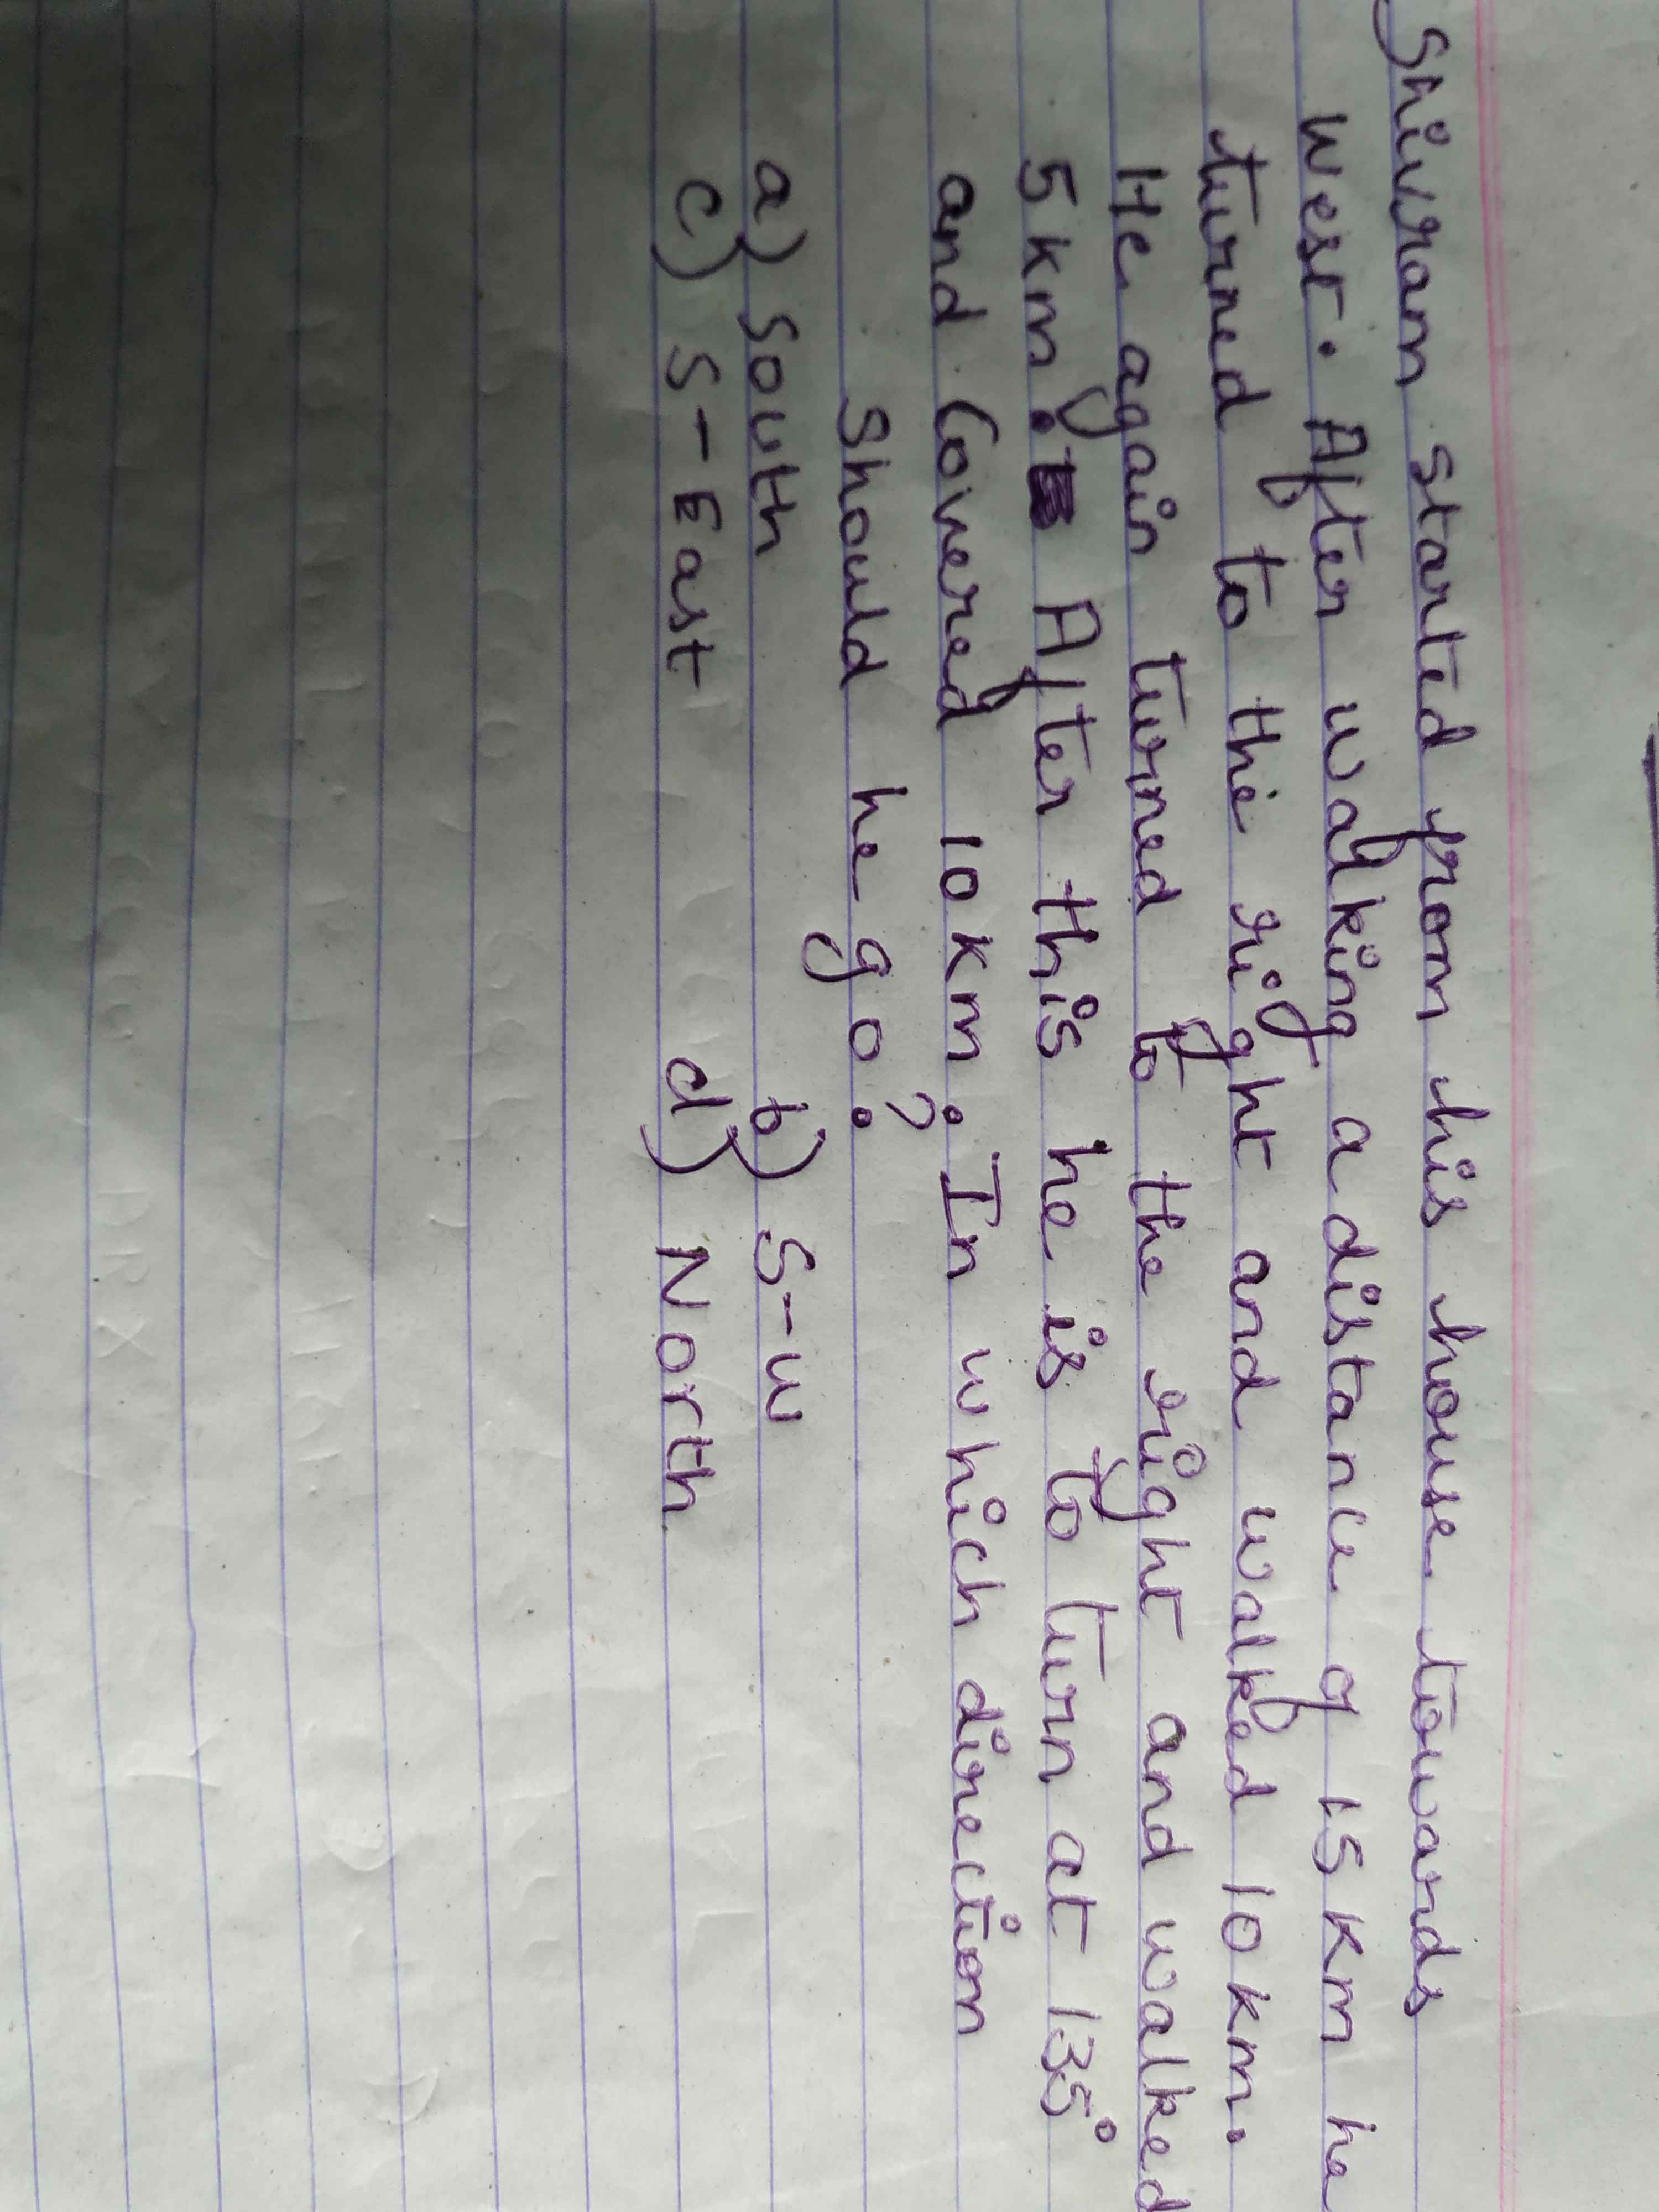 Shivram started from his house towards
west. After walking a distance of 15 km he
turned to the right and walked 10 km.
He again turned to the right and walked
5 km. After this he is to turn at 135°
and Covered 10 km. In which direction
should he go?
a) South b) S-W
c) S-East d) North